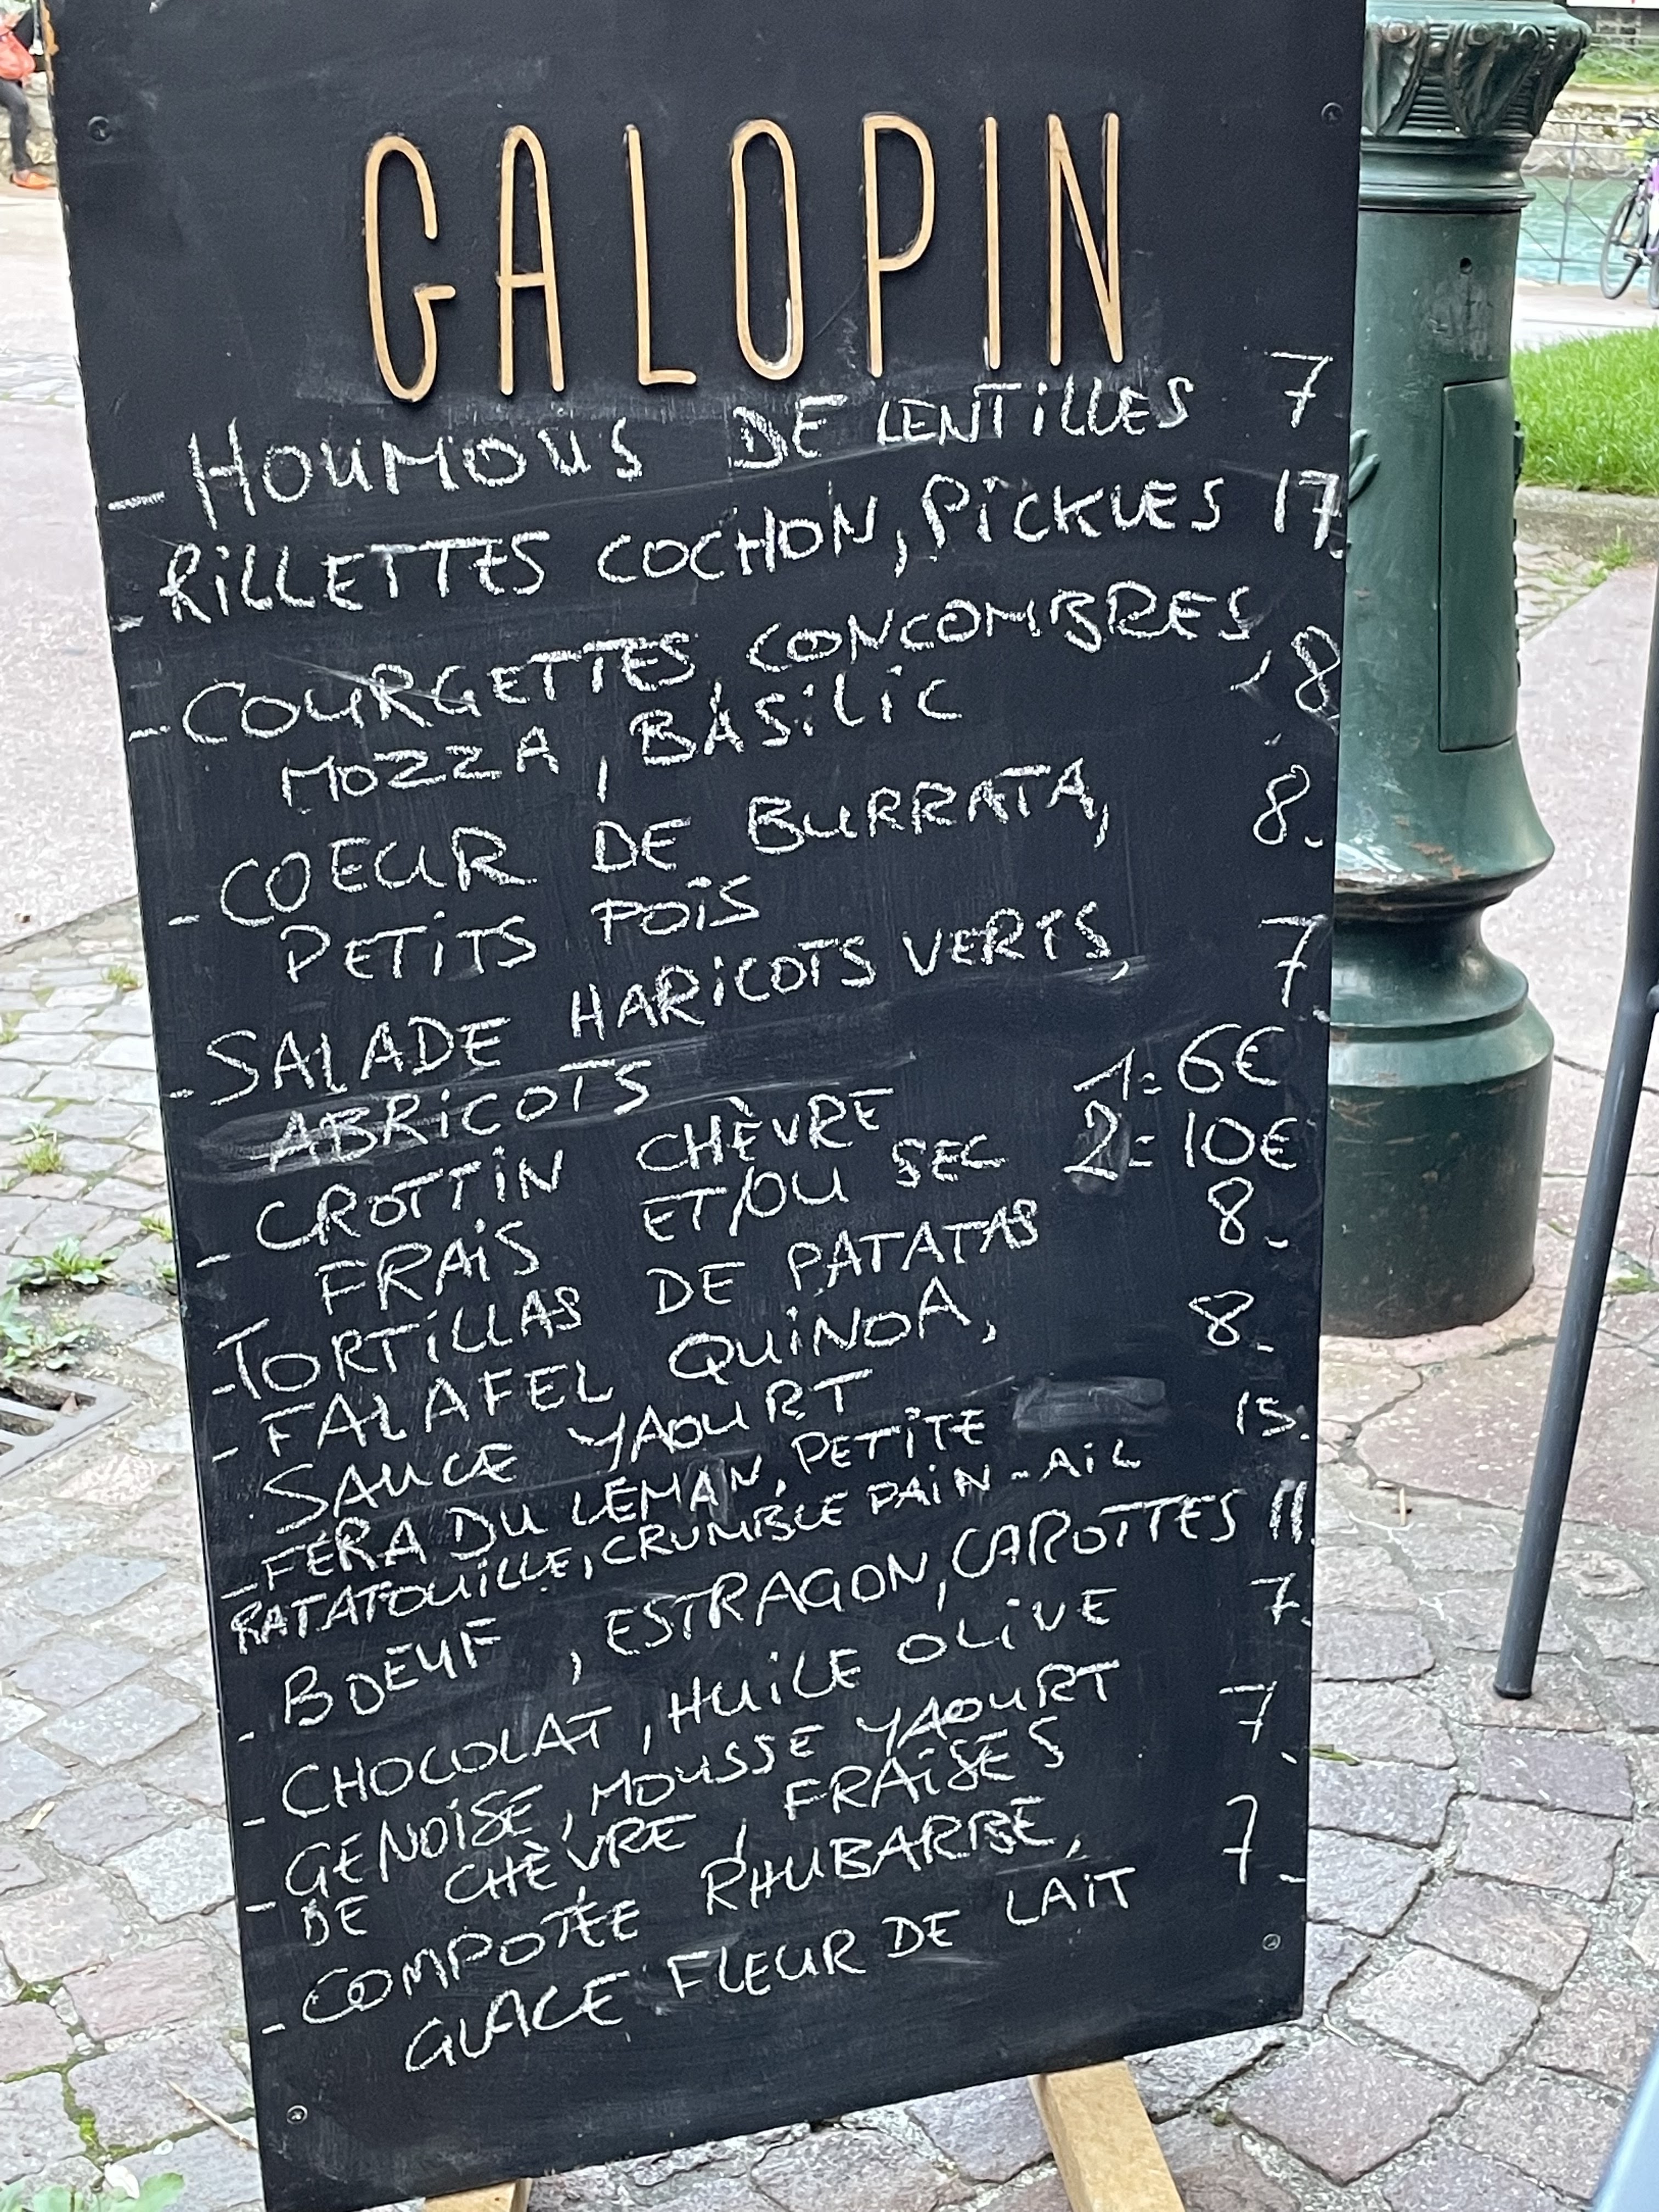 GALOPIN
- HOUMOUS DE LENTILLES 7
- RILLETTES COCHON, PICKLES 17.
- COURGETTES, CONCOMBRES,
MOZZA, BASILIC 8
- COEUR DE BURRATA, 8.
PETITS POIS
- SALADE HARICOTS VERTS, 7.
ABRICOTS
- CROTTIN CHÈVRE 1: 6€
FRAIS ET/OU SEC 2: 10€
- TORTILLAS DE PATATAS 8.
- FALAFEL QUINOA, 8.
SAUCE YAOURT
- FÉRA DU LÉMAN, PETITE 15.
RATATOUILLE, CRUMBLE PAIN-AIL
- BOEUF, ESTRAGON, CAROTTES 11.
- CHOCOLAT, HUILE OLIVE 7.
- GENOISE, MOUSSE YAOURT 7.
DE CHÈVRE, FRAISES
- COMPOTÉE RHUBARBE, 7.
GLACE FLEUR DE LAIT